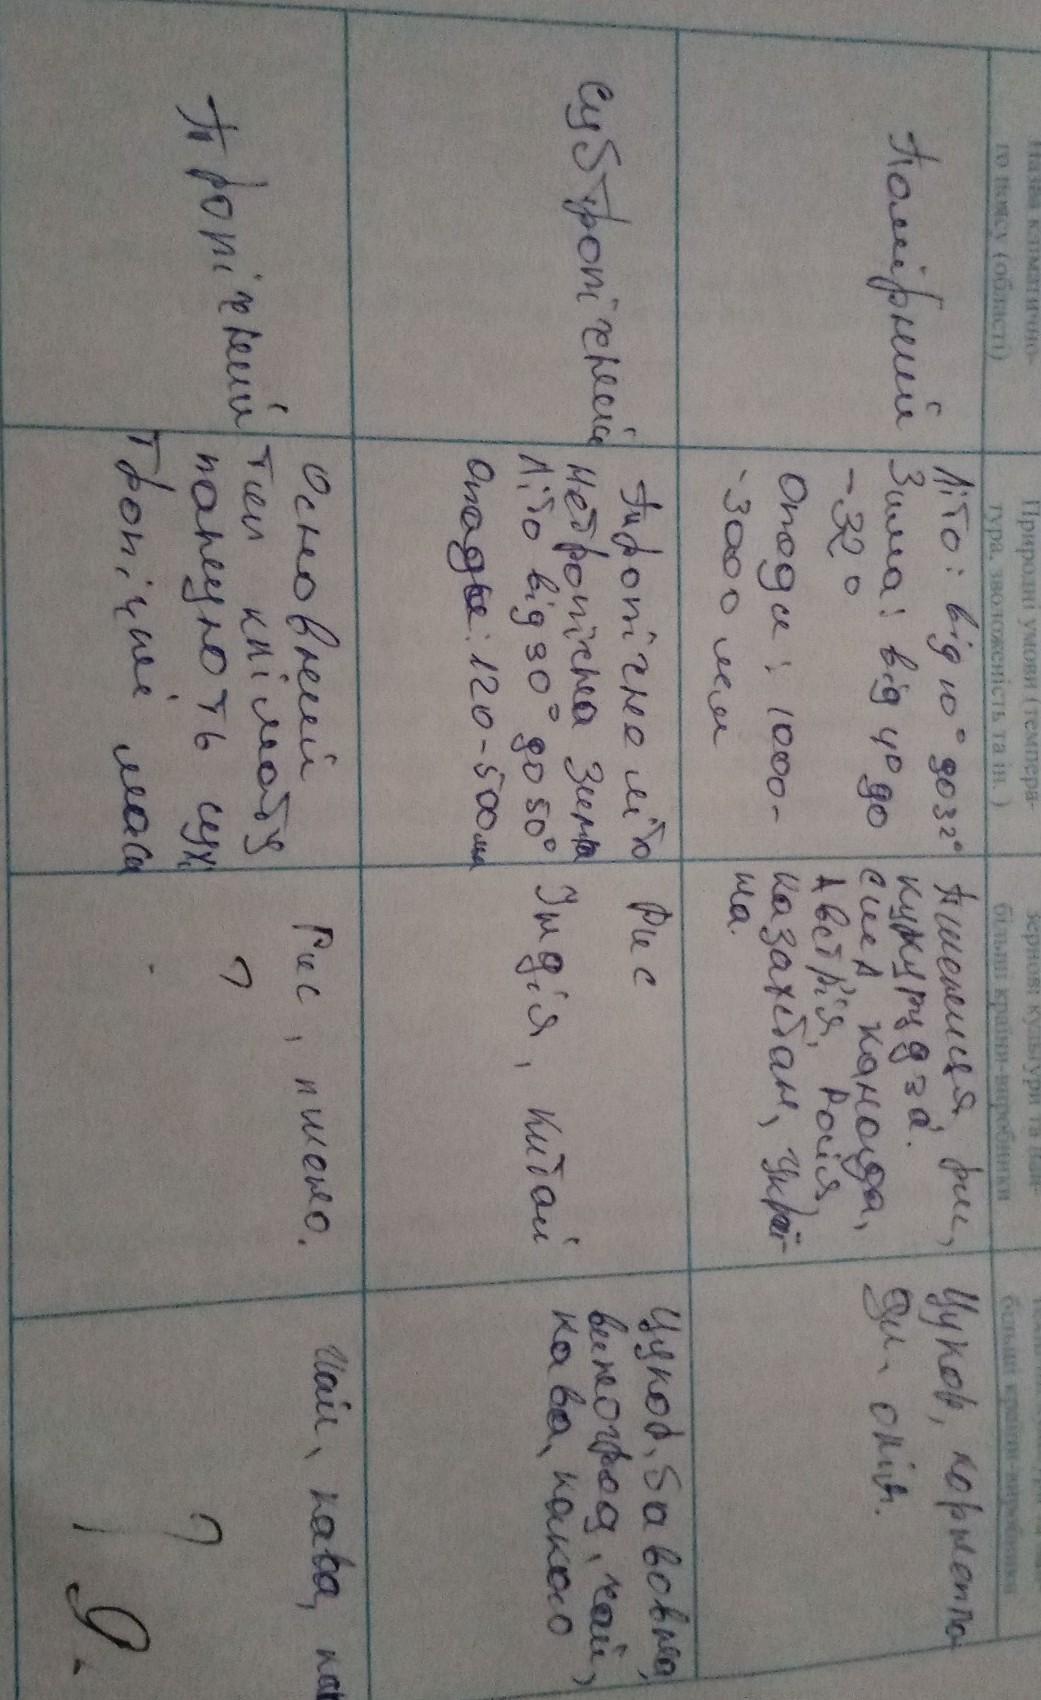 Назва кліматично-
го поясу (області)
Природні умови (темпера-
тура, зволоженість та ін.)
зернові культури та най-
більші країни-виробники
більші країни-виробники
Помірний
Літо: від 10° до 32°
Зима: від 4° до
-32°
Опади: 1000-
-3000 мм
Пшениця, рис,
кукурудза.
США Канада,
Австрія, Росія,
Казахстан, Украї-
на.
Цуков, корметпа
олів.
Субтропічний
Тропічно літо
Нетропічна Зима
Літо від 30° до 50°
Опади: 120-500мм
Рис
Індія, Китай
Цуков, бавовна,
виноград, чай,
кава, какао
Тропічний
Основний
тип клімату
панують сухі
тропічні маси
Рис, пшоно.
?
Чай, кава, как
?
9.